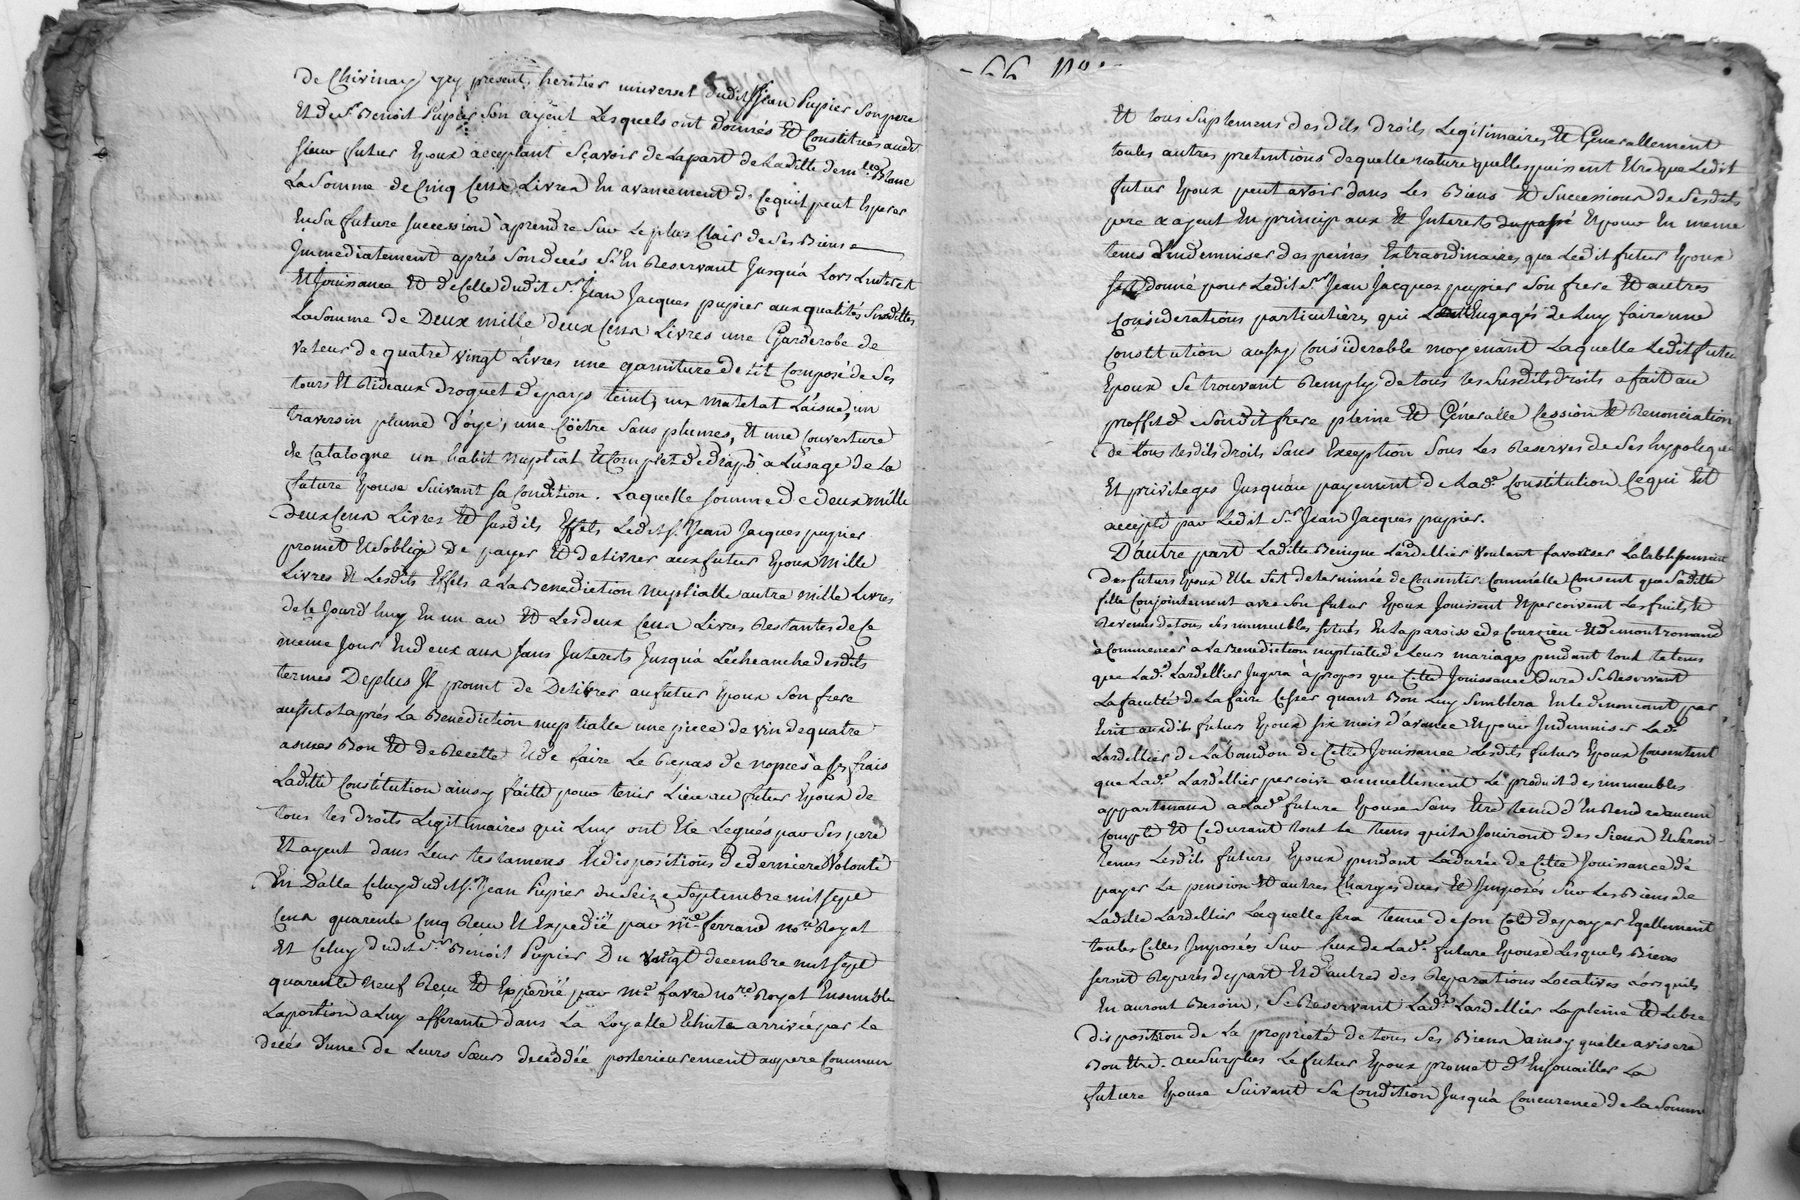 de Chivinay yey present, heritier universel dudit Sr Jean Pupier son pere
Et de Sr Benoit Pupier son ayeul Lesquels ont donnés Et Constitués audit
sieur futur Epoux acceptant sçavoir de la part de Laditte demlle Blanc
La Somme de Cinq Cens Livres En avancement de Ce quil peut Esperer
En Sa future succession à prendre sur Le plus Clair de Ses Biens
Immediatement aprés Son decés S'En Reservant Jusqu'a Lors Linteret
Et Jouissance Et de Celle dudit Sr Jean Jacques pupier aux qualités Susdittes
La Somme de Deux mille deux Cens Livres une Garderobe de
valeur de quatre vingt Livres une garniture de Lit Composé de Ses
tours Et Rideaux droguet de pays teint, un Matelat Laisne, un
traversin plume d'oye, une Coëtre Sans plumes, Et une Couverture
de Catalogne un habit nuptial Et Complet de drap à Lusage de La
future Epouse Suivant sa Condition. Laquelle somme de deux mille
deux Cens Livres Et susdits Effets Ledit Sr Jean Jacques pupier
promet Et S'oblige de payer Et delivrer aux futur Epoux Mille
Livres Et Lesdits Effets a La Benediction Nuptialle autre mille Livres
de Ce Jourd'huy En un an Et Les deux Cens Livres Restantes de Ce
meme Jour En deux ans sans Interests Jusqu'à Lecheanche desdits
termes De plus Il promet de Delivrer au futur Epoux Son frere
aussitot aprés La Benediction nuptialle une piece de vin de quatre
asnées Bon Et de Recette Et de faire Le Repas de nopces à ses frais
Laditte Constitution ainsy faitte pour tenir Lieu au futur Epoux de
tous Les droits Legitimaires qui Luy ont Eté Legués par Ses pere
Et ayeul dans Leur testamens Et dispositions de derniere Volonté
En Datte Celuy dudit Sr Jean Pupier du Seize Septembre mil sept
Cens quarente Cinq Reçu Et Expedié par Me ferrand nore Royal
Et Celuy dudit Sr Benoit Pupier Du vingt decembre mil sept
quarente neuf Reçu Et Expedié par Me favre nore Royal Ensemble
La portion a Luy afferante dans La Loyalle Echute arrivée par Le
décés d'une de Leurs Soeurs decéddée posterieurement au pere Commun
Et tous Suplemens desdits droits Legitimaires, Et Generallement
toutes autres pretentions de quelle nature quelles puissent Etre que Ledit
futur Epoux peut avoir dans Les Biens Et Successions de Sesdits
pere & ayeul En principaux Et Interests du passé Et pour En meme
tems L'indemniser des peines Extraordinaires que Ledit futur Epoux
s'est donné pour Ledit Sr Jean Jacques pupier Son frere Et autres
Considerations particulières qui L'ont Engagés de Luy faire une
Constitution aussy Considerable moyenant Laquelle Ledit futur
Epoux Se trouvant Remply de tous Les Susdits droits a fait au
proffit de Sondit frere pleine Et Générale Cession Et Renonciation
de tous Lesdits droits Sans Exception Sous Les Reserves de Ses hypoteques
Et privileges Jusqu'au payement de Lade Constitution Ce qui Est
accepté par Ledit Sr Jean Jacques pupier.
D'autre part Laditte Benigne Lardellier Voulant favoriser Letablissement
Des futurs Epoux Elle s'est determinée de Consentir Comme Elle Consent que Saditte
fille Conjointement avec Son futur Epoux Jouissent Et perçoivent Les fruits Et
Revenus de tous Ses immeubles Situés En La paroisse de Courzieu Et de montromand
à Commencer à La Benediction nuptialle de Leurs mariages pendant tout le tems
que Lade Lardellier Jugera à propos que Cette Jouissance dure Se Reservant
La faculté de La faire Cesser quant Bon Luy Semblera En Le denoncant par
Ecrit auxdits futurs Epoux six mois d'avance Et pour Indemniser Lade
Lardellier de Labandon de Cette Jouissance Lesdits futurs Epoux Consentent
que Lade Lardellier perçoive annuellement Le produit des immeubles
appartenans a Lade future Epouse Sans Etre tenue d'En Rendre aucun
Compte Et Ce durant tout Le tems quils Jouiront des Siens Et Seront
tenus Lesdits futurs Epoux pendant La durée de Cette Jouissance de
payer Le pension Et autres Charges dues Et Imposés Sur Les Biens de
Laditte Lardellier Laquelle sera tenue de son Coté de payer Egallement
toutes Celles Imposées Sur Ceux de Lade future Epouse Lesquels Biens
seront Reparés de part Et d'autres des Reparations Locatives Lorsquils
En auront Besoin, Se Reservant Lade Lardellier La pleine Et Libre
disposition de La propriété de tous Ses Biens ainsy quelle avisera
Bon Etre. au Surplus Le futur Epoux promet d'Enjouailler La
future Epouse Suivant Sa Condition Jusqu'à Concurence de La Somme